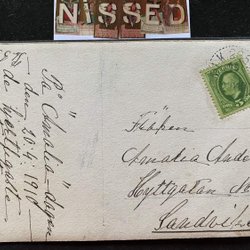 NISSED
På "Amalia"-dagen
den 20.4.1910
Fröken
Amalia Ander
Hyttgatan
Sandvik